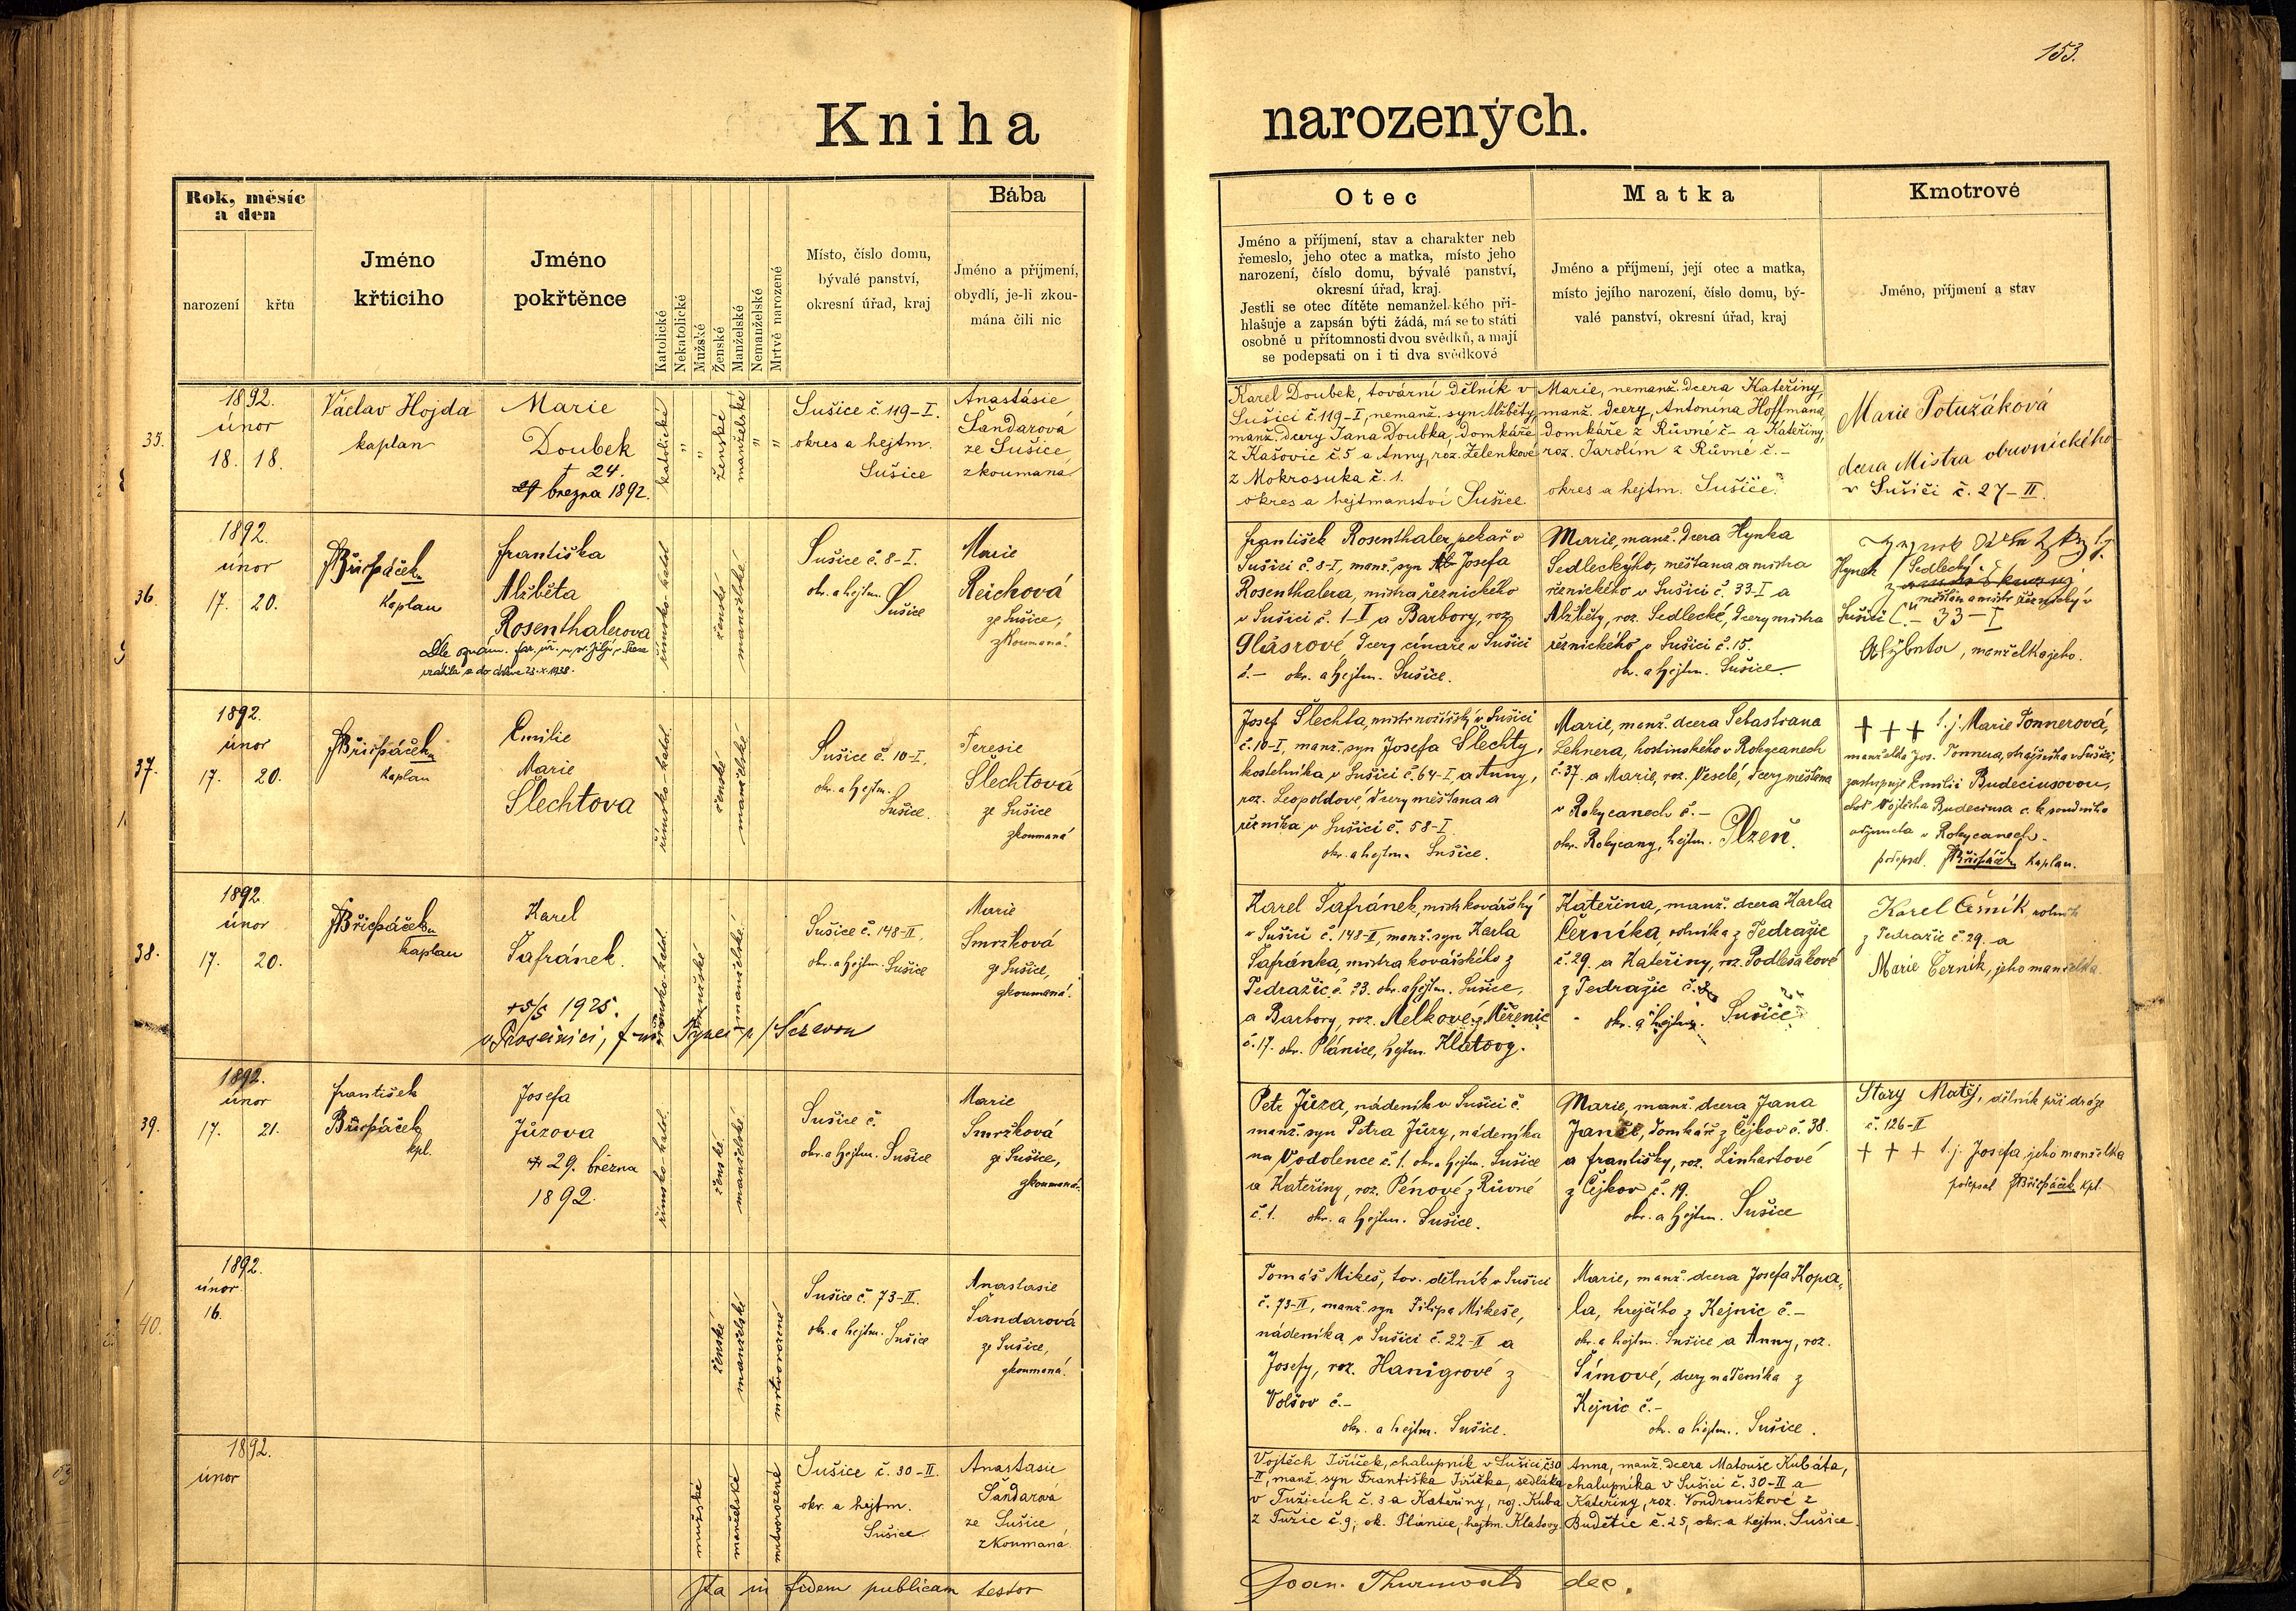 153.
Kniha narozených.
Rok, měsíc
a den
narození
křtu
Jméno
křtícího
Jméno
pokřtěnce
Katolické
Nekatolické
Mužské
Ženské
Manželské
Nemanželské
Mrtvě narozené
Místo, číslo domu,
bývalé panství,
okresní úřad, kraj
Bába
Jméno a příjmení,
obydlí, je-li zkou-
mána čili nic
Otec
Jméno a příjmení, stav a charakter neb
řemeslo, jeho otec a matka, místo jeho
narození, číslo domu, bývalé panství,
okresní úřad, kraj.
Jestli se otec dítěte nemanželského při-
hlašuje a zapsán býti žádá, má se to státi
osobně u přítomnosti dvou svědků, a mají
se podepsati on i ti dva svědkové
Matka
Jméno a příjmení, její otec a matka,
místo jejího narození, číslo domu, bý-
valé panství, okresní úřad, kraj
Kmotrové
Jméno, příjmení a stav
35.
1892.
únor
18. 18.
Václav Hojda
kaplan
Marie
Doubek
† 24.
března 1892.
katolické
"
"
ženské
manželské
"
"
Sušice č. 119-I.
okres a hejtm.
Sušice
Anastásie
Šandarová
ze Sušice
zkoumaná
Karel Doubek, tovární dělník v
Sušici č. 119-I, nemanž. syn Alžběty
manž. dcery Jana Doubka, domkáře
z Kašovic č. 5 a Anny, roz. Zelenkové
z Mokrosuka č. 1.
okres a hejtmanství Sušice.
Marie, nemanž. dcera Kateřiny,
manž. dcery, Antonína Hoffmana,
domkáře z Růvné č.- a Kateřiny,
roz. Jarolím z Růvné č. -
okres a hejtm. Sušice.
Marie Potužáková
dcera Mistra obuvnického
v Sušici č. 27-II.
36.
1892.
únor
17. 20.
FBřicháček
kaplan
Františka
Alžběta
Rosenthalerova
Dle oznám. far. úř. u sv. Jiljí v
vrátila se do církve 23.X.1938.
římsko-katol.
ženské
manželské
Sušice č. 8-I.
okr. a hejtm.
Sušice
Marie
Reichová
ze Sušice,
zkoumaná.
František Rosenthaler, pekař v
Sušici č. 8-I, manž. syn Josefa
Rosenthalera, mistra řeznického
v Sušici č. 1-I a Barbory, roz.
Glásrové, dcery cínaře v Sušici
č.- okr. a hejtm. Sušice.
Marie, manž. dcera Hynka
Sedleckýho, měšťana a mistra
řeznického v Sušici č. 33-I a
Alžběty, roz. Sedlecké, dcery mistra
řeznického v Sušici č. 15.
okr. a hejtm. Sušice.
Hynek Sedlecký
měšťan a mistr řeznický v
Sušici č. 33-I
Alžbeta, manželka jeho.
37.
1892.
únor
17. 20.
FBřicháček
kaplan
Emilie
Marie
Šlechtova
římsko-katol.
ženské
manželské
Sušice č. 10-I,
okr. a hejtm.
Sušice.
Teresie
Šlechtová
ze Sušice
zkoumaná
Josef Šlechta, mistr nožířský v Sušici
č. 10-I, manž. syn Josefa Šlechty,
kostelníka v Sušici č. 64-I, a Anny,
roz. Leopoldové, dcery měšťana a
řezníka v Sušici č. 58-I
okr. a hejtm. Sušice.
Marie, manž. dcera Sebastiana
Lehnera, hostinského v Rokycanech
č. 37 a Marie, roz. Veselé, dcery měšťana
v Rokycanech č. -
okr. Rokycany, hejtm. Plzeň.
+ + + t. j. Marie Tonnerová,
manželka Jos. Tonnera, obchodníka v Sušici,
zastupuje Emilii Budeciusovou,
choť Vojtěcha Budeciusa c. k. soudního
adjunkta v Rokycanech.
podepsal FBřicháček kaplan.
38.
1892.
únor
17. 20.
FBřicháček
kaplan
Karel
Šafránek.
+ 5/5 1925.
v Prosečnici,
římsko-katol.
mužské
manželské
Sušice č. 148-II.
okr. a hejtm. Sušice
Marie
Smržková
ze Sušice,
zkoumaná.
Karel Šafránek, mistr kovářský
v Sušici č. 148-II, manž. syn Karla
Šafránka, mistra kovářského z
Tedražic č. 33. okr. a hejtm. Sušice,
a Barbory, roz. Melkové z Měřenic
č. 17. okr. Plánice, hejtm. Klatovy.
Kateřina, manž. dcera Karla
Černíka, rolníka z Tedražic
č. 29. a Kateřiny, roz. Podlešákové
z Tedražic č.
okr. a hejtm. Sušice
Karel Černík rolník
z Tedražic č. 29. a
Marie Černík, jeho manželka.
39.
1892.
únor
17. 21.
František
Břicháček
kpl.
Josefa
Jůzova
† 29. března
1892.
římsko-katol.
ženské.
manželské.
Sušice č.
okr. a hejtm. Sušice
Marie
Smržková
ze Sušice,
zkoumaná.
Petr Jůza, nádeník v Sušici č.
manž. syn Petra Jůzy, nádeníka
na Vodolence č. 1. okr. a hejtm. Sušice
a Kateřiny, roz. Pénové z Růvné
č. 1. okr. a hejtm. Sušice.
Marie, manž. dcera Jana
Janče, domkáře z Čejkov č. 38.
a Františky, roz. Linhartové
z Čejkov č. 19.
okr. a hejtm. Sušice
Starý Matěj, dělník při dráze
č. 126-II
+ + + t. j. Josefa, jeho manželka
podepsal FBřicháček kpl.
40.
1892.
únor
16.
ženské
manželské
mrtvorozené
Sušice č. 73-II.
okr. a hejtm. Sušice
Anastasie
Šandarová
ze Sušice,
zkoumaná.
Tomáš Mikeš, tov. dělník v Sušici
č. 73-II, manž. syn Filipa Mikeše,
nádeníka v Sušici č. 22-II a
Josefy, roz. Hanigrové z
Volšov č.-
okr. a hejtm. Sušice.
Marie, manž. dcera Josefa Kopa-
la, krejčího z Kejnic č.-
okr. a hejtm. Sušice a Anny, roz.
Šímové, dcery nádeníka z
Kejnic č.-
okr. a hejtm. Sušice.
1892.
únor
mužské
manželské
mrtvorozené
Sušice č. 30-II.
okr. a hejtm.
Sušice
Anastasie
Šandarová
ze Sušice
zkoumaná.
Vojtěch Jiříček, chalupník v Sušici č. 30
-II, manž. syn Františka Jiříčka, sedláka
v Tužicích č. 3 a Kateřiny, roz. Kuba
z Tužic č. 9, ok. Plánice, hejtm. Klatovy.
Anna, manž. dcera Matouše Kubáta,
chalupníka v Sušici č. 30-II a
Kateřiny, roz. Vondrouškové z
Budětic č. 25, okr. a hejtm. Sušice.
Ita in fidem publicam testor
Joan. Thurnwald dec.